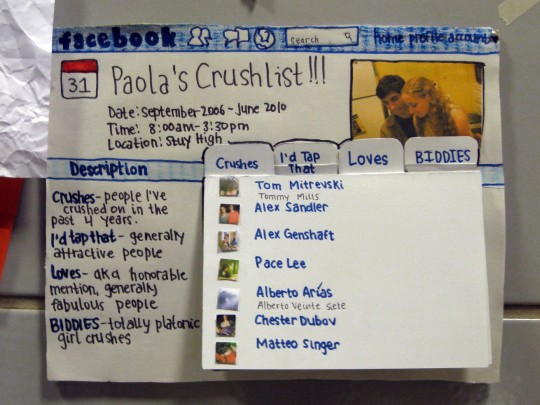 facebook
search
home profile account
31
Paola's Crushlist!!!
Date: september 2006 - June 2010
Time: 8:00am - 3:30pm
Location: Stuy High
Description
Crushes - people I've
crushed on in the
past 4 years.
I'd tap that - generally
attractive people
Loves - aka honorable
mention, generally
fabulous people
BIDDIES - totally platonic
girl crushes
Crushes
I'd Tap
That
Loves
BIDDIES
Tom Mitrevski
Tommy Mills
Alex Sandler
Alex Genshaft
Pace Lee
Alberto Arías
Alberto Veinte Siete
Chester Dubov
Matteo Singer